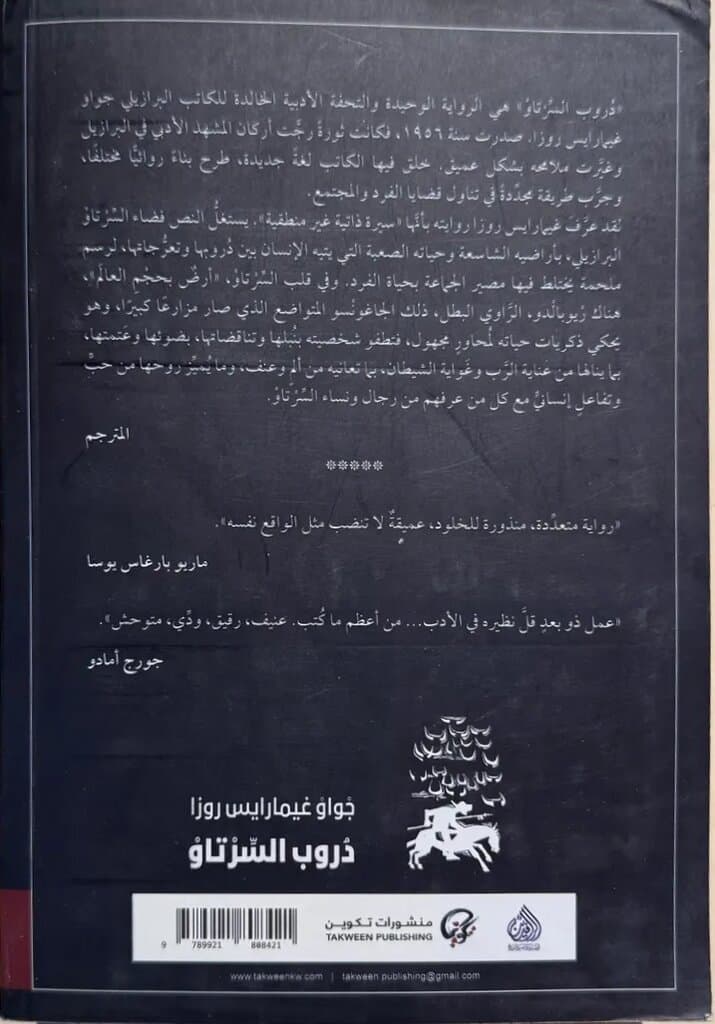 «دُروب السِّرْتاوْ» هي الرواية الوحيدة والتحفة الأدبية الخالدة للكاتب البرازيلي جواو
غيمارايس روزا. صدرت سنة ١٩٥٦، فكانت ثورةً رجَّت أركان المشهد الأدبي في البرازيل
وغيَّرت ملامحه بشكل عميق. خلق فيها الكاتب لغةً جديدة، طرح بناءً روائيًّا مختلفًا،
وجرَّب طريقة مجدِّدةً في تناول قضايا الفرد والمجتمع.
لقد عرَّف غيمارايس روزا روايته بأنَّها «سيرة ذاتية غير منطقية». يستغلُّ النص فضاء السِّرْتاوْ
البرازيلي، بأراضيه الشاسعة وحياته الصعبة التي يتيه الإنسان بين دُروبها وتعرُّجاتها، لرسم
ملحمة يختلط فيها مصير الجماعة بحياة الفرد. وفي قلب السِّرْتاوْ، «أرضٌ بحجْم العالَم»،
هناك ريوبالْدو، الرَّاوي البطل، ذلك الجاغونْسو المتواضع الذي صار مزارعًا كبيرًا، وهو
يحكي ذكريات حياته لمُحاورٍ مجهول، فتطفو شخصيته بنُبلها وتناقضاتها، بضوئها وعَتمتها،
بما ينالها من عناية الرَّب وغَواية الشيطان، بما تعانيه من ألم وعنف، وما يُميِّز روحها من حبٍّ
وتفاعلٍ إنسانيٍّ مع كل من عرفهم من رجال ونساء السِّرْتاوْ.
المترجم
*****
«رواية متعدِّدة، منذورة للخلود، عميقةٌ لا تنضب مثل الواقع نفسه».
ماريو بارغاس يوسا
«عمل ذو بعدٍ قلَّ نظيره في الأدب... من أعظم ما كُتب. عنيف، رقيق، ودِّي، متوحش».
جورج أمادو
جْواوْ غيمارايس روزا
دُروب السِّرْتاوْ
9 789921 808421
منشورات تكوين
TAKWEEN PUBLISHING
تكوين
الرافدين
www.takweenkw.com | takween.publishing@gmail.com